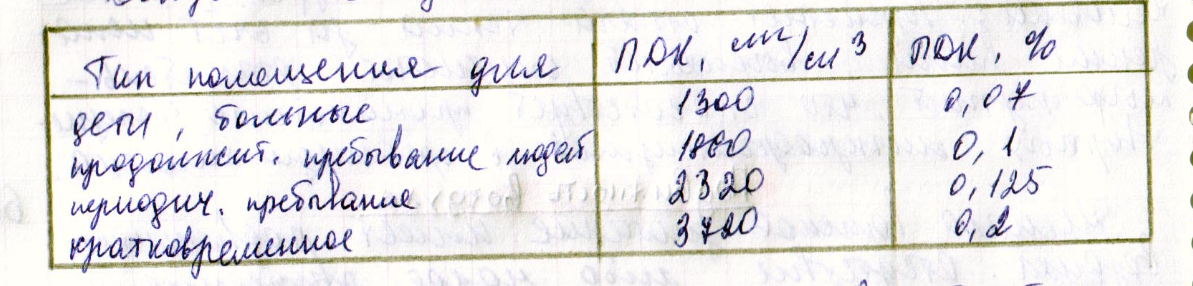 Тип помещения для ПДК, мг/м3 ПДК, %
дети, больные 1300 0,07
продолжит. пребывание людей 1860 0,1
периодич. пребывание 2320 0,125
кратковременное 3720 0,2